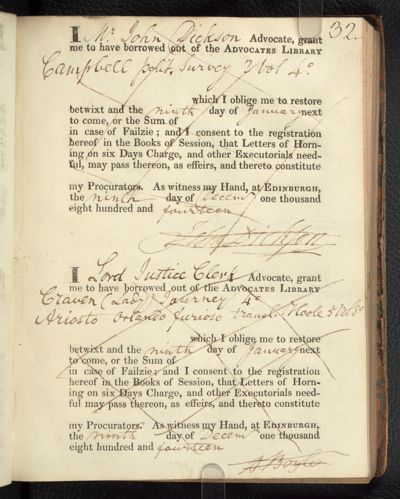 32.
I Mr John Dickson Advocate, grant
me to have borrowed out of the ADVOCATES LIBRARY
Campbell polit. Survey 2 Vol 4o
which I oblige me to restore
betwixt and the ninth day of January next
to come, or the Sum of
in case of Failzie; and I consent to the registration
hereof in the Books of Session, that Letters of Horn-
ing on six Days Charge, and other Executorials need-
ful, may pass thereon, as effeirs, and thereto constitute
my Procurators. As witness my Hand, at EDINBURGH,
the ninth day of Decemr one thousand
eight hundred and fourteen
John Dickson
I Lord Justice Clerk Advocate, grant
me to have borrowed out of the ADVOCATES LIBRARY
Craven (Lady) Journey 4o
Ariosto Orlando furioso transl. Hoole 5 Vol 8o
which I oblige me to restore
betwixt and the ninth day of January next
to come, or the Sum of
in case of Failzie; and I consent to the registration
hereof in the Books of Session, that Letters of Horn-
ing on six Days Charge, and other Executorials need-
ful may pass thereon, as effeirs, and thereto constitute
my Procurators. As witness my Hand, at EDINBURGH,
the ninth day of Decem one thousand
eight hundred and fourteen
D Boyle